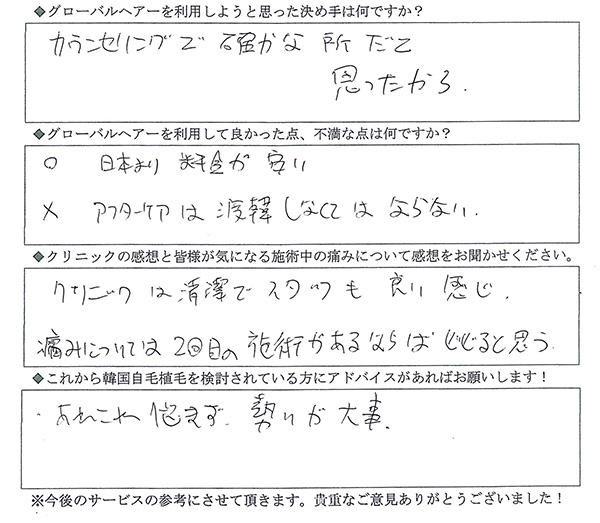 ◆グローバルヘアーを利用しようと思った決め手は何ですか？
カウンセリングで確かな所だと
思ったから.
◆グローバルヘアーを利用して良かった点、不満な点は何ですか？
○ 日本より料金が安い
× アフターケアは渡韓しなくてはならない.
◆クリニックの感想と皆様が気になる施術中の痛みについて感想をお聞かせください。
クリニックは清潔でスタッフも良い感じ.
痛みについては2回目の施術があるならばビビると思う.
◆これから韓国自毛植毛を検討されている方にアドバイスがあればお願いします！
・あれこれ悩まず.勢いが大事.
※今後のサービスの参考にさせて頂きます。貴重なご意見ありがとうございました！